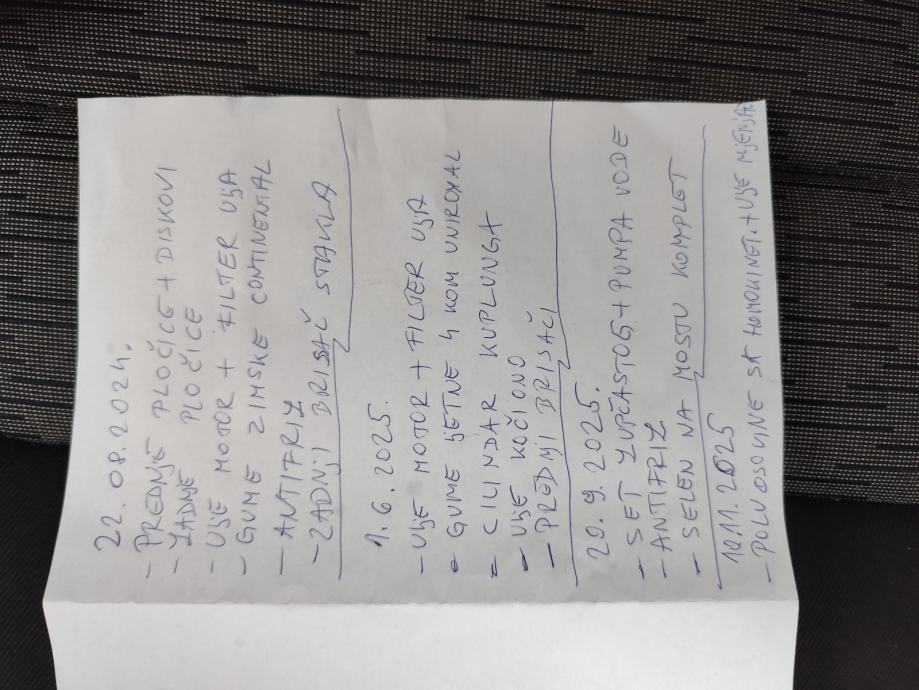 22.08.2024.
- PREDNJE PLOČICE + DISKOVI
- ZADNJE PLOČICE
- ULJE MOTOR + FILTER ULJA
- GUME ZIMSKE CONTINENTAL
- ANTIFRIZ
- ZADNJI BRISAČ STAKLA
1.6.2025.
- ULJE MOTOR + FILTER ULJA
- GUME LJETNE 4 KOM UNIROYAL
- CILINDAR KUPLUNGA
- ULJE KOČIONO
- PREDNJI BRISAČI
20.9.2025.
- SET ZUPČASTOG + PUMPA VODE
- ANTIFRIZ
- SELEN NA MOSTU KOMPLET
10.11.2025
- POLUOSOVINE SA HOMOKINET. + ULJE MJENJAČ